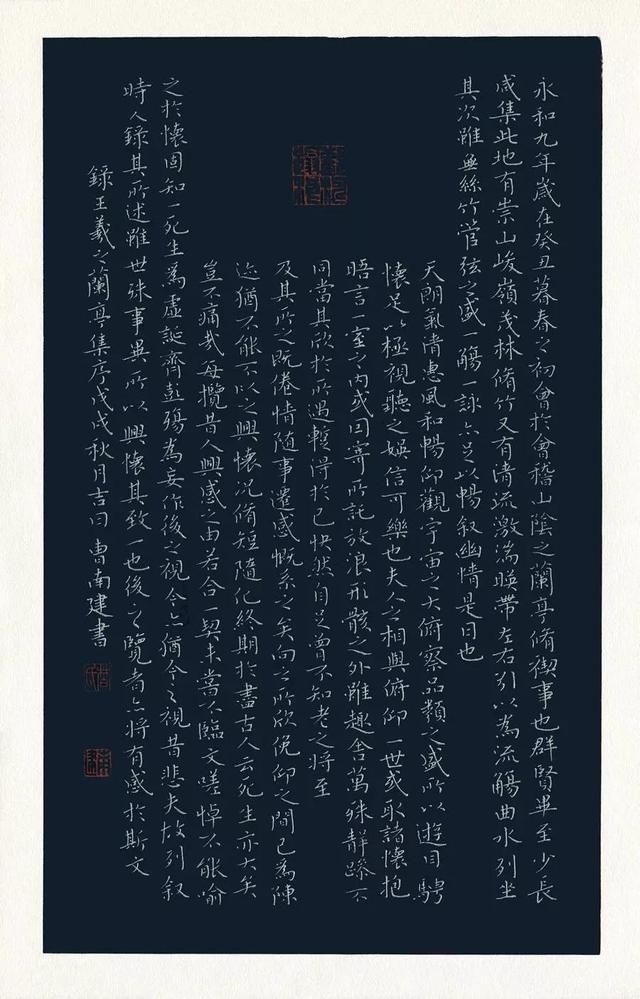 永和九年歲在癸丑暮春之初會於會稽山陰之蘭亭脩禊事也群賢畢至少長
咸集此地有崇山峻嶺茂林脩竹又有清流激湍暎帶左右引以為流觴曲水列坐
其次雖無絲竹管弦之盛一觴一詠亦足以暢叙幽情是日也
天朗氣清惠風和暢仰觀宇宙之大俯察品類之盛所以遊目騁
懷足以極視聽之娛信可樂也夫人之相與俯仰一世或取諸懷抱
晤言一室之內或因寄所託放浪形骸之外雖趣舍萬殊靜躁不
同當其欣於所遇蹔得於己快然自足曾不知老之將至
及其所之既倦情隨事遷感慨系之矣向之所欣俛仰之間已為陳
迹猶不能不以之興懷況脩短隨化終期於盡古人云死生亦大矣
豈不痛哉每攬昔人興感之由若合一契未嘗不臨文嗟悼不能喻
之於懷固知一死生為虛誕齊彭殤為妄作後之視今亦猶今之視昔悲夫故列叙
時人錄其所述雖世殊事異所以興懷其致一也後之覽者亦將有感於斯文
錄王羲之蘭亭集序戊戌秋月吉日曹南建書